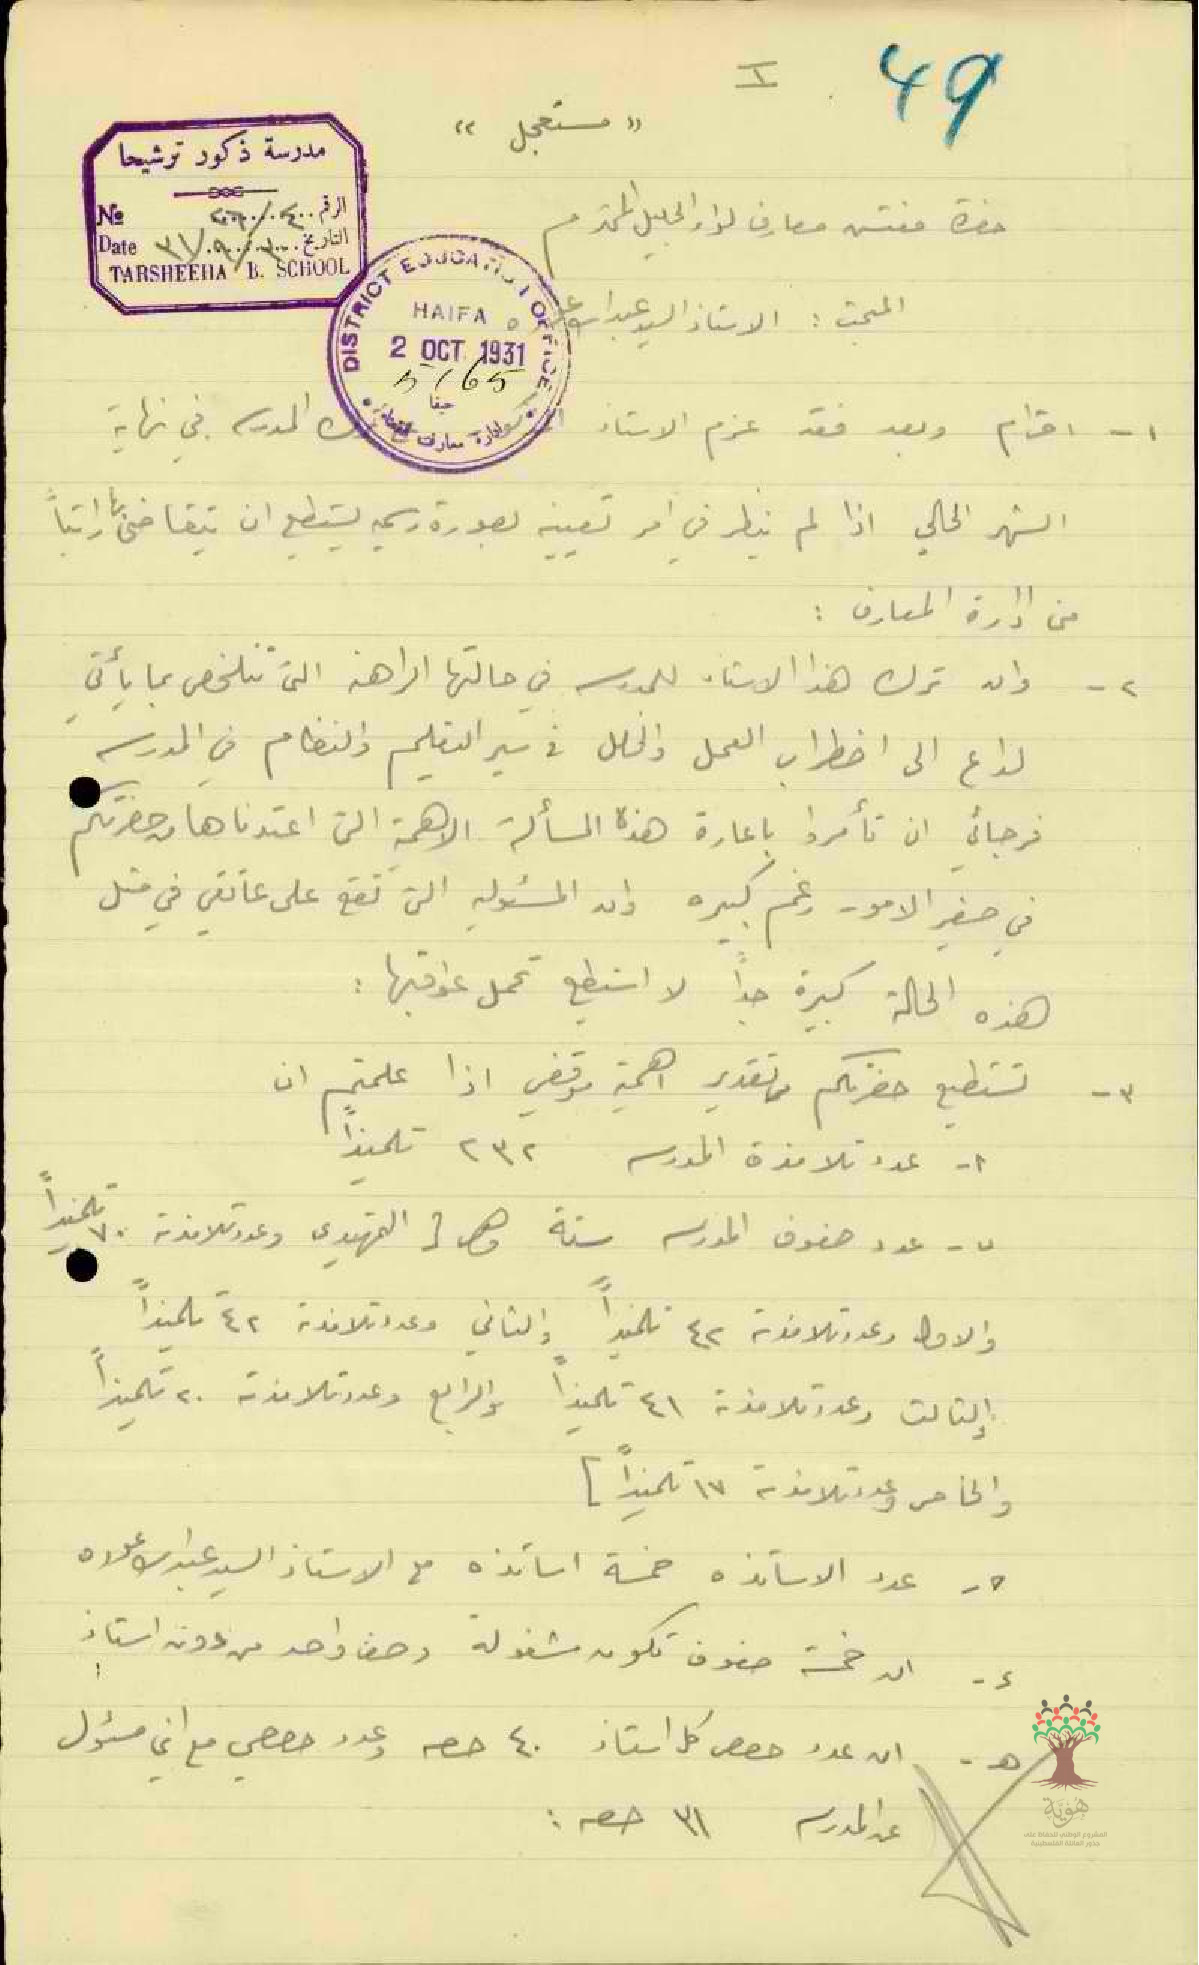 49
I
« مستعجل »
مدرسة ذكور ترشيحا
No الرقم
Date التاريخ
TARSHEEHA B. SCHOOL
حضرة مفتش معارف لواء الجليل المحترم
DISTRICT EDUCATION OFFICE
HAIFA
2 OCT 1931
5/65
حيفا
المبحث : الاستاذ السيد عبدالله
١ - احترام وبعد فقد عزم الاستاذ المدرسه في نهاية
الشهر الحالي اذا لم ينظر في امر تعيينه بصورة رسميه يستطيع ان يتقاضى بها راتباً
من ادارة المعارف :
٢ - وان ترك هذا الاستاذ للمدرسه في حالتها الراهنه التي تتلخص بما يأتي
لداع الى اضطراب العمل والخلل في سير التعليم والنظام في المدرسه
فرجائي ان تأمروا باعارة هذه المسألة الاهمية التي اعتدناها من حضرتكم
في صغير الامور رغم كبيره وان المسئوليه التي تقع على عاتقي في مثل
هذه الحالة كبيرة جداً لا استطيع تحمل عواقبها :
٣ - تستطيع حضرتكم تقدير اهمية موقفي اذا علمتم ان
١ - عدد تلامذة المدرسه ٢٣٢ تلميذاً
٢ - عدد صفوف المدرسه ستة وهي [ التمهيدي وعدد تلامذته ٧٠ تلميذاً
والاول وعدد تلامذته ٤٢ تلميذاً والثاني وعدد تلامذته ٤٢ تلميذاً
والثالث وعدد تلامذته ٤١ تلميذاً والرابع وعدد تلامذته ٢٠ تلميذاً
والخامس وعدد تلامذته ١٧ تلميذاً ]
عدد الاساتذه خمسة اساتذه مع الاستاذ السيد عبدالله
٤ - ان خمسة صفوف تكون مشغولة وصف واحد من دون استاذ
هـ - ان عدد حصص كل استاذ ٤٠ حصه وعدد حصصي مع اني مسئول
عن المدرسه ٣١ حصه :
هُوِيَّة
المشروع الوطني للحفاظ على
جذور العائلة الفلسطينية